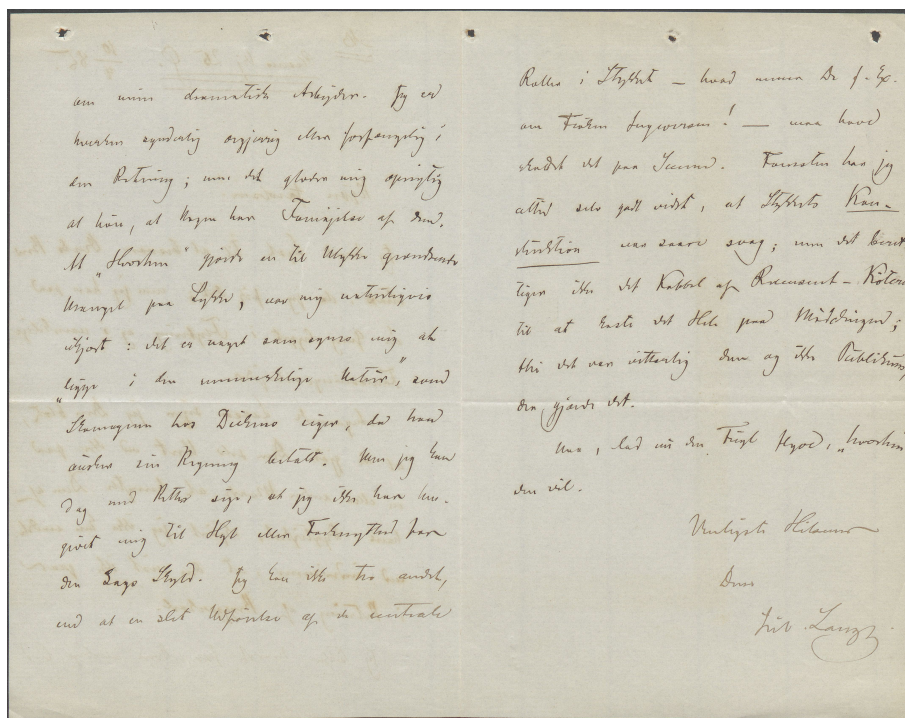 om mine dramatiske Arbejder. Jeg er
hverken synderlig ærgjerrig eller forfængelig i
den Retning; men det glæder mig oprigtig
at høre, at Nogen har Fornøjelse af dem.
At „Hvorhen" gjorde en til Ulykke grændsende
Mangel paa Lykke, var mig naturligvis
ikjært: det er noget som synes mig at
„ligge i den menneskelige Natur", som
hos Dickens siger, da han
ønsker sin Regning betalt. Men jeg kan
dog med Rette sige, at jeg ikke har hen-
givet mig til Hyl eller for
den Sags Skyld. Jeg kan ikke tro andet,
end at en slet Udførelse af de centrale
Roller i Stykket – hvad mener De f. Ex.
om Frøken Ingwersen! – maa have
skadet det paa Scenen. Forresten har jeg
altid selv godt vidst, at Stykkets Kon-
struktion var saare svag; men det beret-
tiger ikke det Kobbel af
til at kaste det Hele paa Møddingen;
thi det var vitterlig dem og ikke Publikum,
der gjorde det.
Naa, lad nu den Fugl flyve, „hvorhen"
den vil.
Venligste Hilsener
Deres
Jul. Lange.